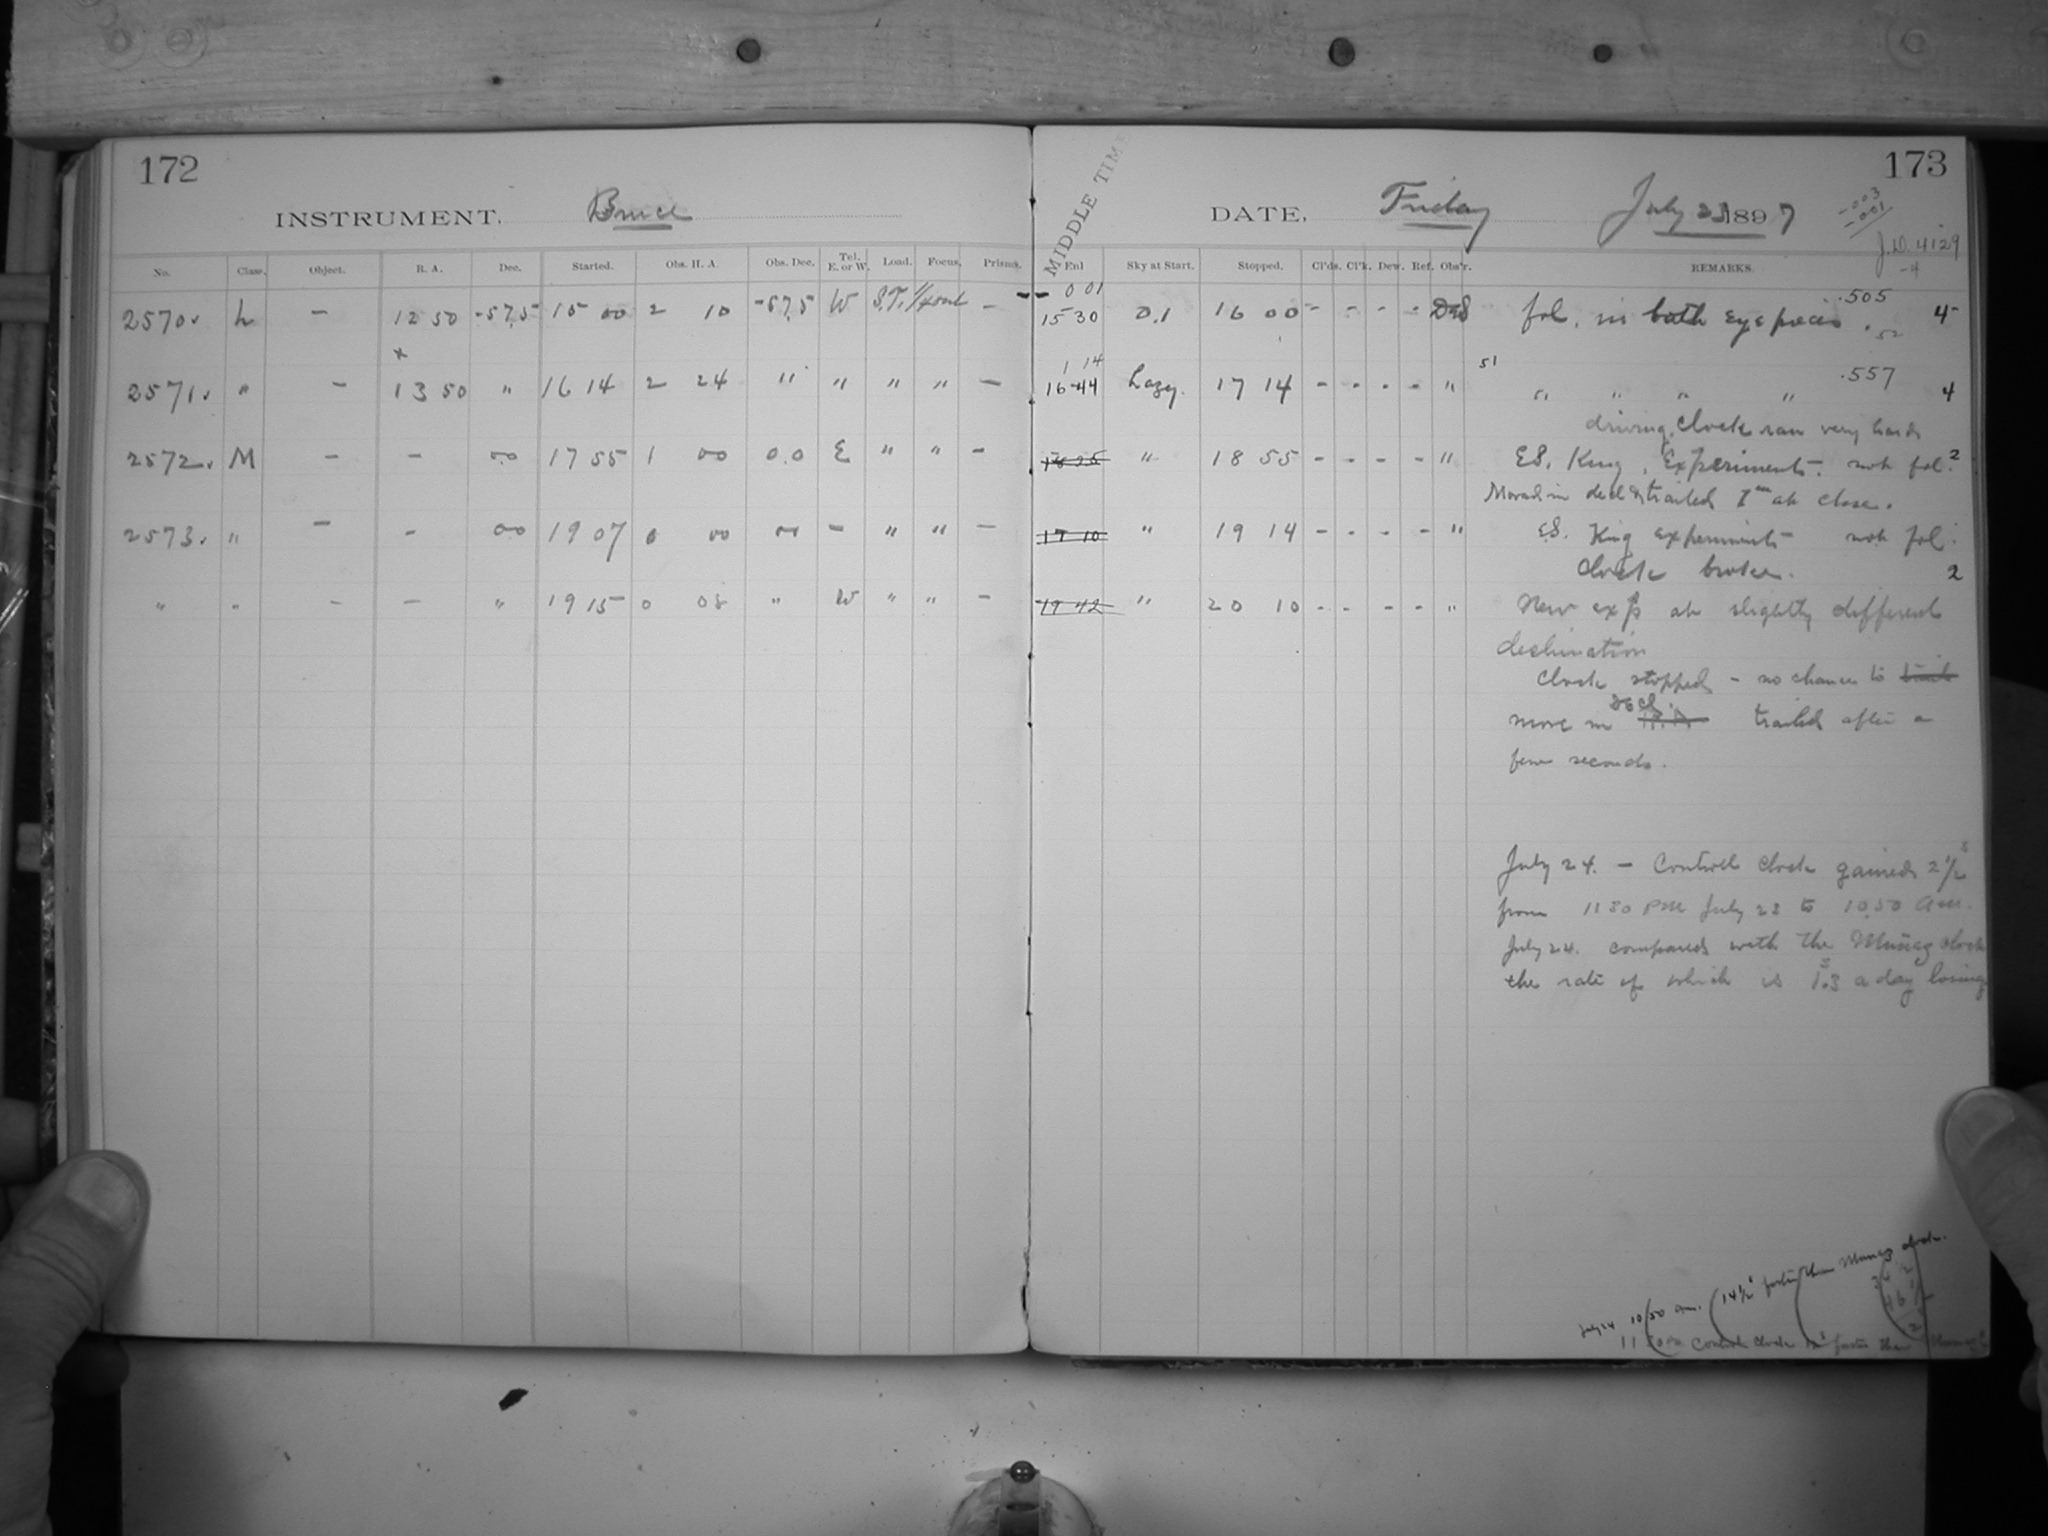 172
INSTRUMENT. Bruce
No. Class. Object. R. A. Dec. Started. Obs. H. A. Obs. Dec. Tel. E. or W. Load. Focus. Prisms.
2570. L - 12 50 -57.5 15 00 2 10 -57.5 W S.T. -
x
2571. " - 13 50 " 16 14 2 24 " " " " -
2572. M - - 0.0 17 55 1 00 0.0 E " " -
2573. " - - 00 19 07 0 00 00 - " " -
" " - - " 19 15 0 08 " W " " -
MIDDLE TIME
173
DATE, Friday July 23 1897
-003
-001
J.D. 4129
-4
Enl Sky at Start. Stopped. Cl'ds. Cl'k. Dew. Ref. Obs'r. REMARKS.
0 01 .505
15 30 0.1 16 00 - - - - fol. in both eyepieces. 4
52
1 14 51 .557
16 44 hazy. 17 14 - - - - " " " " " 4
driving clock ran very hard
" 18 55 - - - - " ES. King, Experiments. not fol. 2
Moved in decl & trailed 1m at close.
19 10 " 19 14 - - - - " ES. King experiments not fol.
Clock broken. 2
19 42 " 20 10 - - - - " New exp at slightly different
declination
Clock stopped - no chance to trail
move in Decl. R.A. trailed after a
few seconds.
July 24. - Control clock gained 2 1/2 s
from 11 30 PM July 23 to 10.50 A.M.
July 24. compared with the Munez clock
the rate of which is 1s.3 a day losing
July 24 10/50 am. 14 1/2 s faster than Munez clock.
Control clock faster than